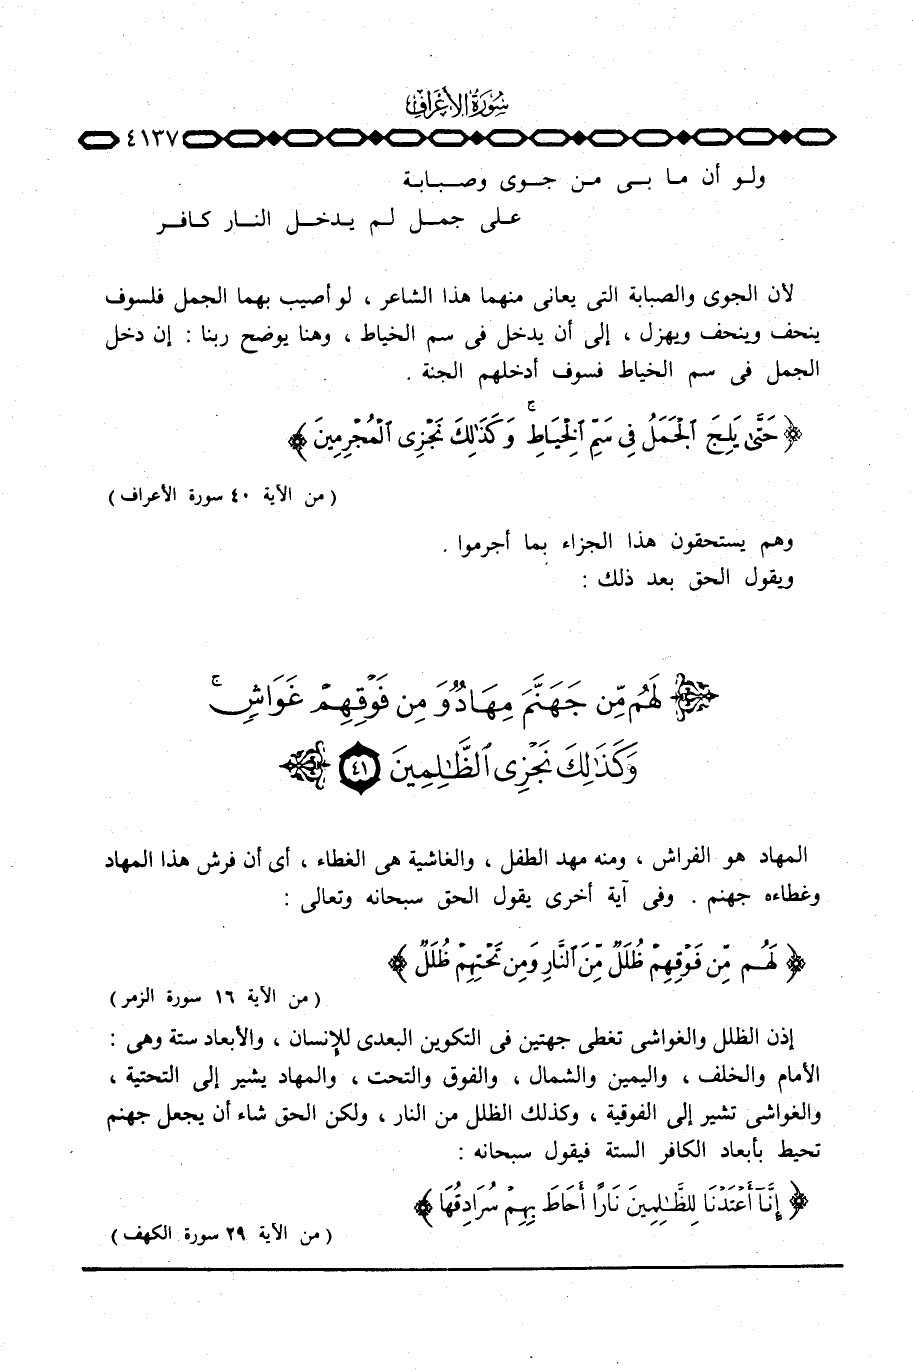 سُورَةُ الأَعْرَافِ
٤١٣٧
ولو أن ما بى من جوى وصبابة
على جمل لم يدخل النار كافر
لأن الجوى والصبابة التى يعانى منهما هذا الشاعر ، لو أصيب بهما الجمل فلسوف
ينحف وينحف ويهزل ، إلى أن يدخل فى سم الخياط ، وهنا يوضح ربنا : إن دخل
الجمل فى سم الخياط فسوف أدخلهم الجنة .
﴿ حَتَّىٰ يَلِجَ ٱلْجَمَلُ فِى سَمِّ ٱلْخِيَاطِ ۚ وَكَذَٰلِكَ نَجْزِى ٱلْمُجْرِمِينَ ﴾
( من الآية ٤٠ سورة الأعراف )
وهم يستحقون هذا الجزاء بما أجرموا .
ويقول الحق بعد ذلك :
﴿ لَهُم مِّن جَهَنَّمَ مِهَادٌ وَمِن فَوْقِهِمْ غَوَاشٍ ۚ
وَكَذَٰلِكَ نَجْزِى ٱلظَّٰلِمِينَ ٤١ ﴾
المهاد هو الفراش ، ومنه مهد الطفل ، والغاشية هى الغطاء ، أى أن فرش هذا المهاد
وغطاءه جهنم . وفى آية أخرى يقول الحق سبحانه وتعالى :
﴿ لَهُم مِّن فَوْقِهِمْ ظُلَلٌ مِّنَ ٱلنَّارِ وَمِن تَحْتِهِمْ ظُلَلٌ ﴾
( من الآية ١٦ سورة الزمر )
إذن الظلل والغواشى تغطى جهتين فى التكوين البعدى للإنسان ، والأبعاد ستة وهى :
الأمام والخلف ، واليمين والشمال ، والفوق والتحت ، والمهاد يشير إلى التحتية ،
والغواشى تشير إلى الفوقية ، وكذلك الظلل من النار ، ولكن الحق شاء أن يجعل جهنم
تحيط بأبعاد الكافر الستة فيقول سبحانه :
﴿ إِنَّآ أَعْتَدْنَا لِلظَّٰلِمِينَ نَارًا أَحَاطَ بِهِمْ سُرَادِقُهَا ﴾
( من الآية ٢٩ سورة الكهف )